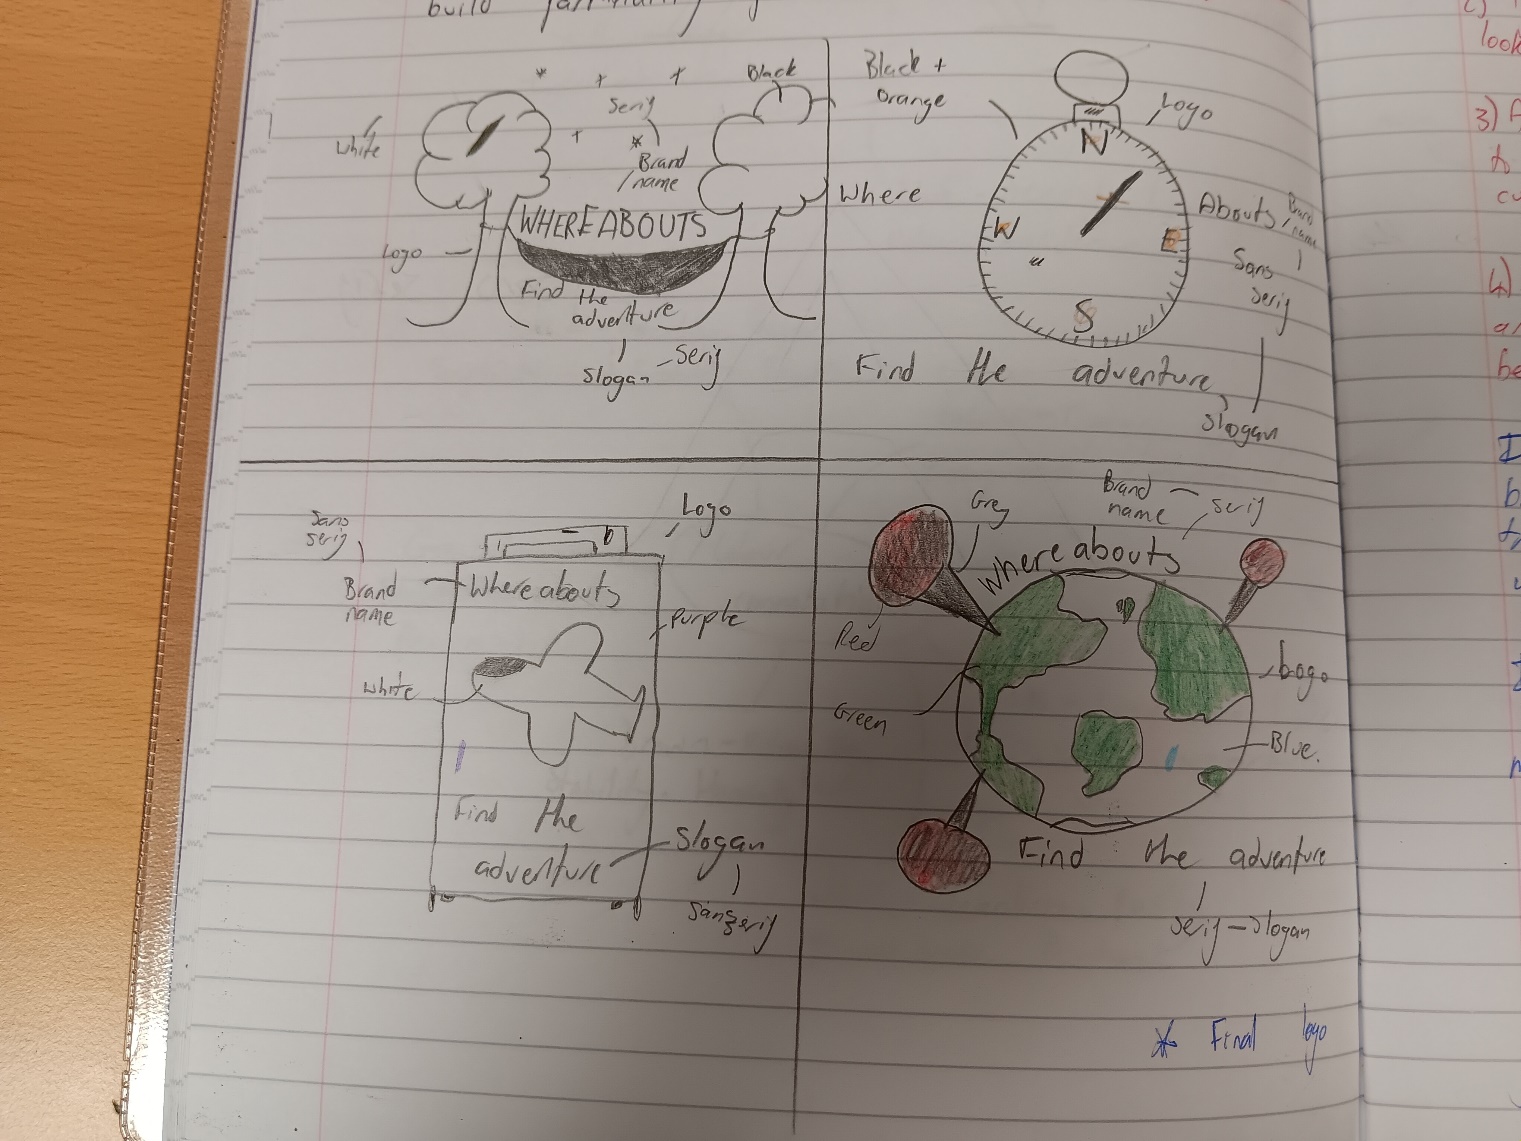 build
Black
Serif
white
Brand
name
WHEREABOUTS
Logo
Find the
adventure
Serif
Slogan
Black +
Orange
Logo
N
Where
Abouts
Brand
name
W
E
Sans
Serif
S
Find the adventure
Slogan
Sans
serif
Logo
Brand
name
Whereabouts
Purple
white
Find the
adventure
Slogan
Sans serif
Grey
Brand
name
Serif
Whereabouts
Red
Logo
Green
Blue.
Find the adventure
Serif – Slogan
* Final logo
look
3)
4)
be